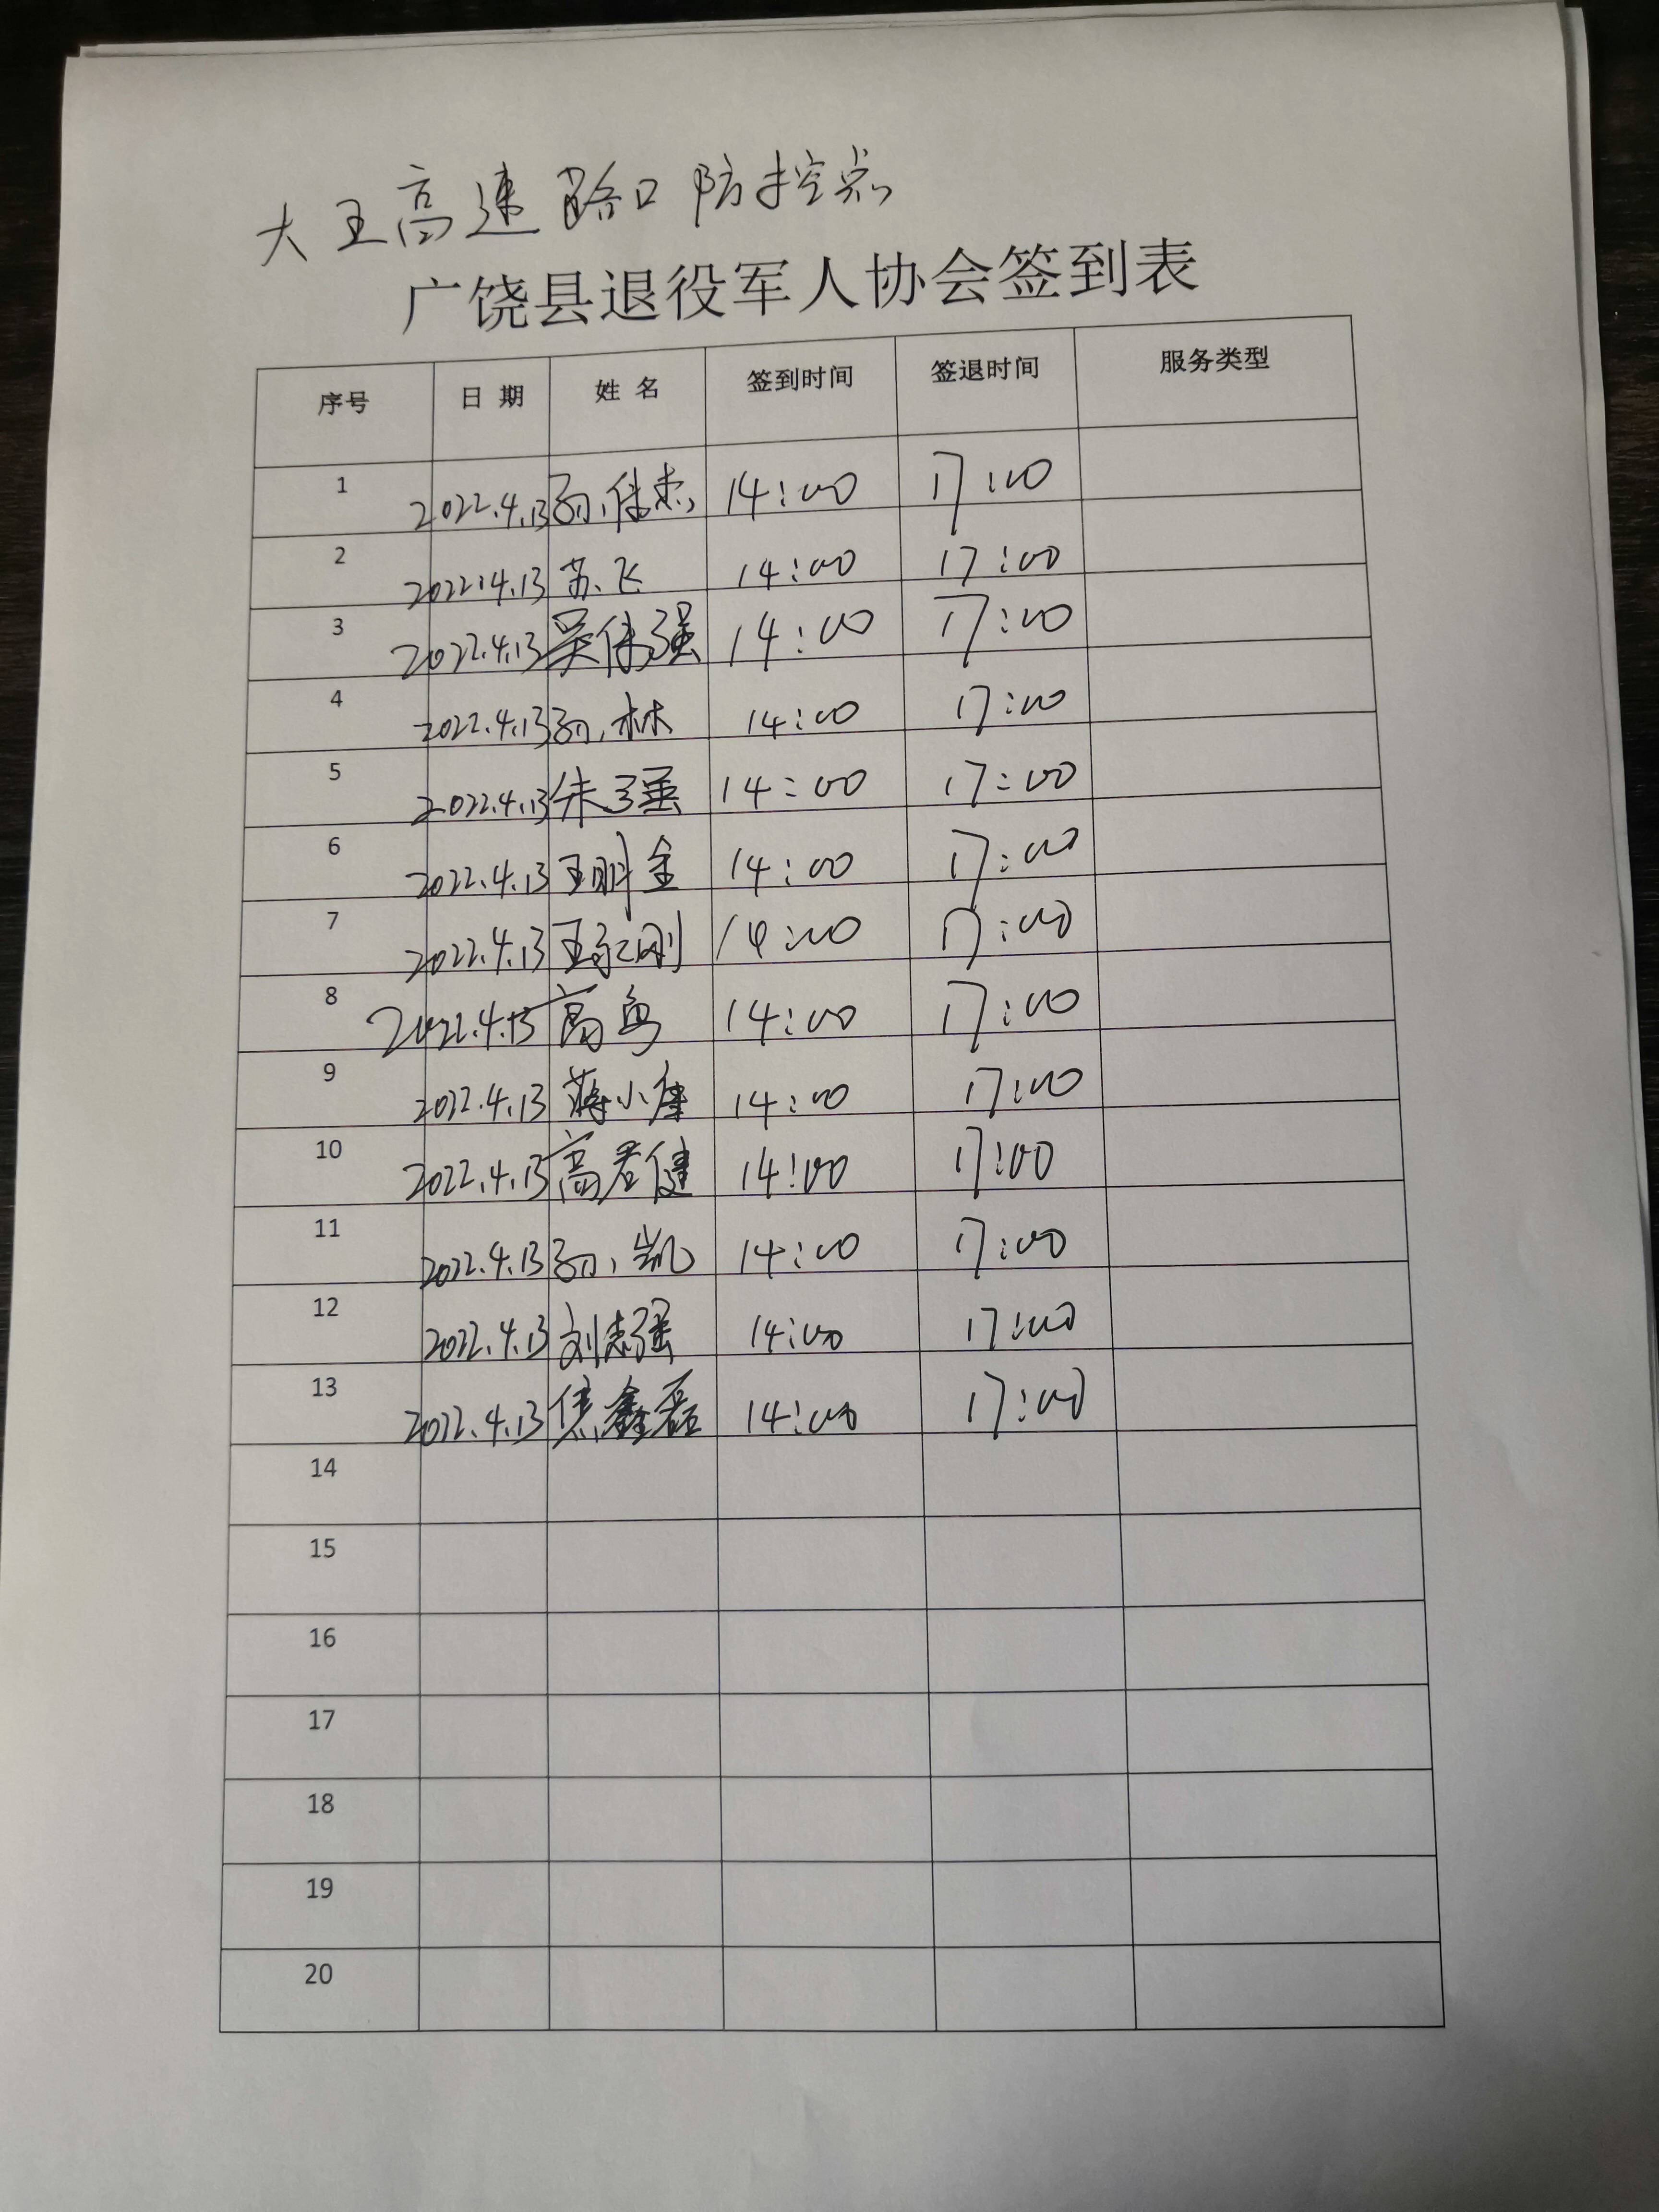 大王高速路口防控点
广饶县退役军人协会签到表
序号 日 期 姓 名 签到时间 签退时间 服务类型
1 2022.4.13 孙佳杰 14:00 17:00
2 2022.4.13 苏飞 14:00 17:00
3 2022.4.13 吴伟强 14:00 17:00
4 2022.4.13 孙林 14:00 17:00
5 2022.4.13 朱强 14:00 17:00
6 2022.4.13 王 金 14:00 17:00
7 2022.4.13 王永刚 14:00 17:00
8 2022.4.13 高 14:00 17:00
9 2022.4.13 蒋小康 14:00 17:00
10 2022.4.13 高君健 14:00 17:00
11 2022.4.13 孙凯 14:00 17:00
12 2022.4.13 刘志强 14:00 17:00
13 2022.4.13 焦鑫磊 14:00 17:00
14
15
16
17
18
19
20